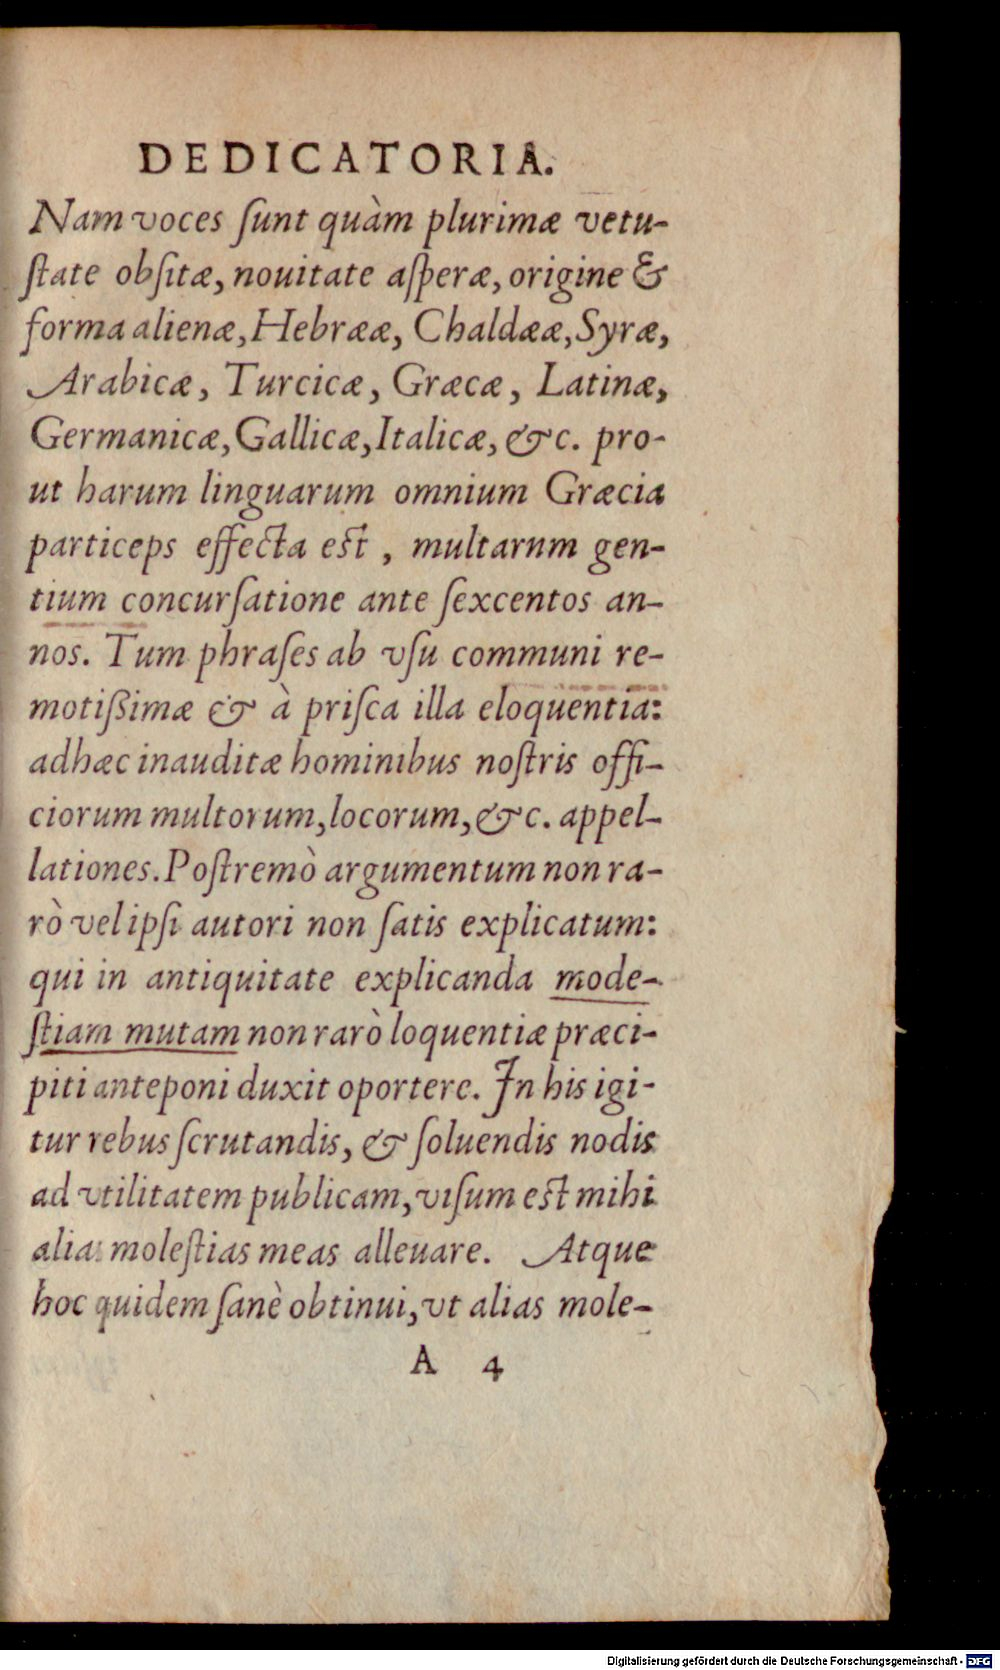 DEDICATORIA.
Nam voces ſunt quàm plurimæ vetu-
ſtate obſitæ, nouitate aſperæ, origine &
forma alienæ, Hebrææ, Chaldææ, Syræ,
Arabicæ, Turcicæ, Græcæ, Latinæ,
Germanicæ, Gallicæ, Italicæ, &c. pro-
ut harum linguarum omnium Græcia
particeps effecta eſt, multarnm gen-
tium concurſatione ante ſexcentos an-
nos. Tum phraſes ab vſu communi re-
motißimæ & à priſca illa eloquentia:
adhæc inauditæ hominibus noſtris offi-
ciorum multorum, locorum, &c. appel-
lationes. Poſtremò argumentum non ra-
rò vel ipſi autori non ſatis explicatum:
qui in antiquitate explicanda mode-
ſtiam mutam non rarò loquentiæ præci-
piti anteponi duxit oportere. In his igi-
tur rebus ſcrutandis, & ſoluendis nodis
ad vtilitatem publicam, viſum eſt mihi
alias moleſtias meas alleuare. Atque
hoc quidem ſanè obtinui, vt alias mole-
A 4
Digitalisierung gefördert durch die Deutsche Forschungsgemeinschaft - DFG